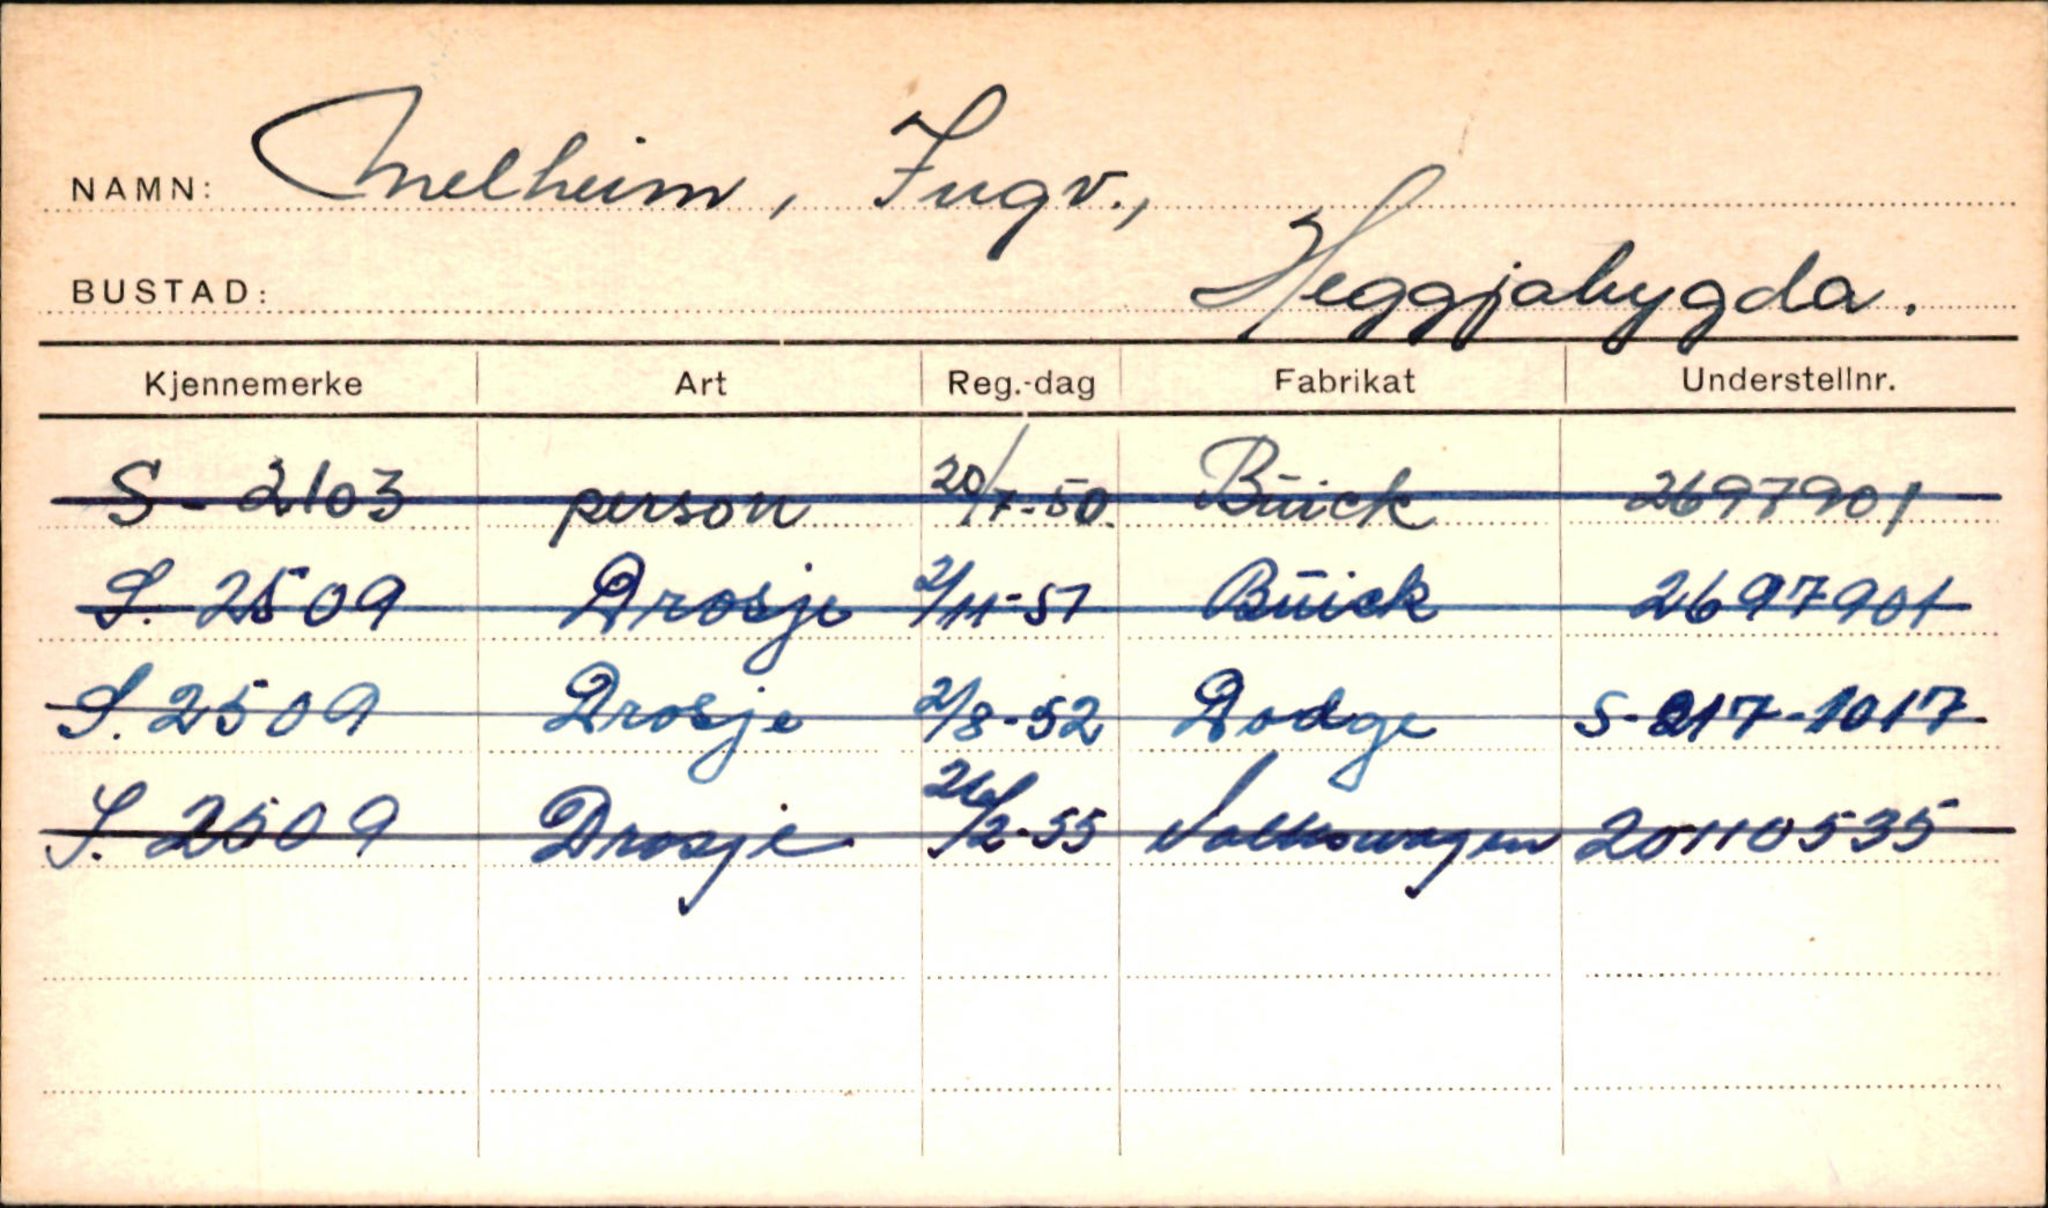 NAMN: Melheim, Ingv.,
BUSTAD: Heggjabygda.
Kjennemerke Art Reg.-dag Fabrikat Understellnr.
S - 2103 person 20/7-50. Büick 2697901
S. 2509 Drosje 2/11-51 Büick 2697901
S. 2509 Drosje 2/8-52 Dodge S-217-1017
S. 2509 Drosje 26/2-55 Volkswagen 20110535